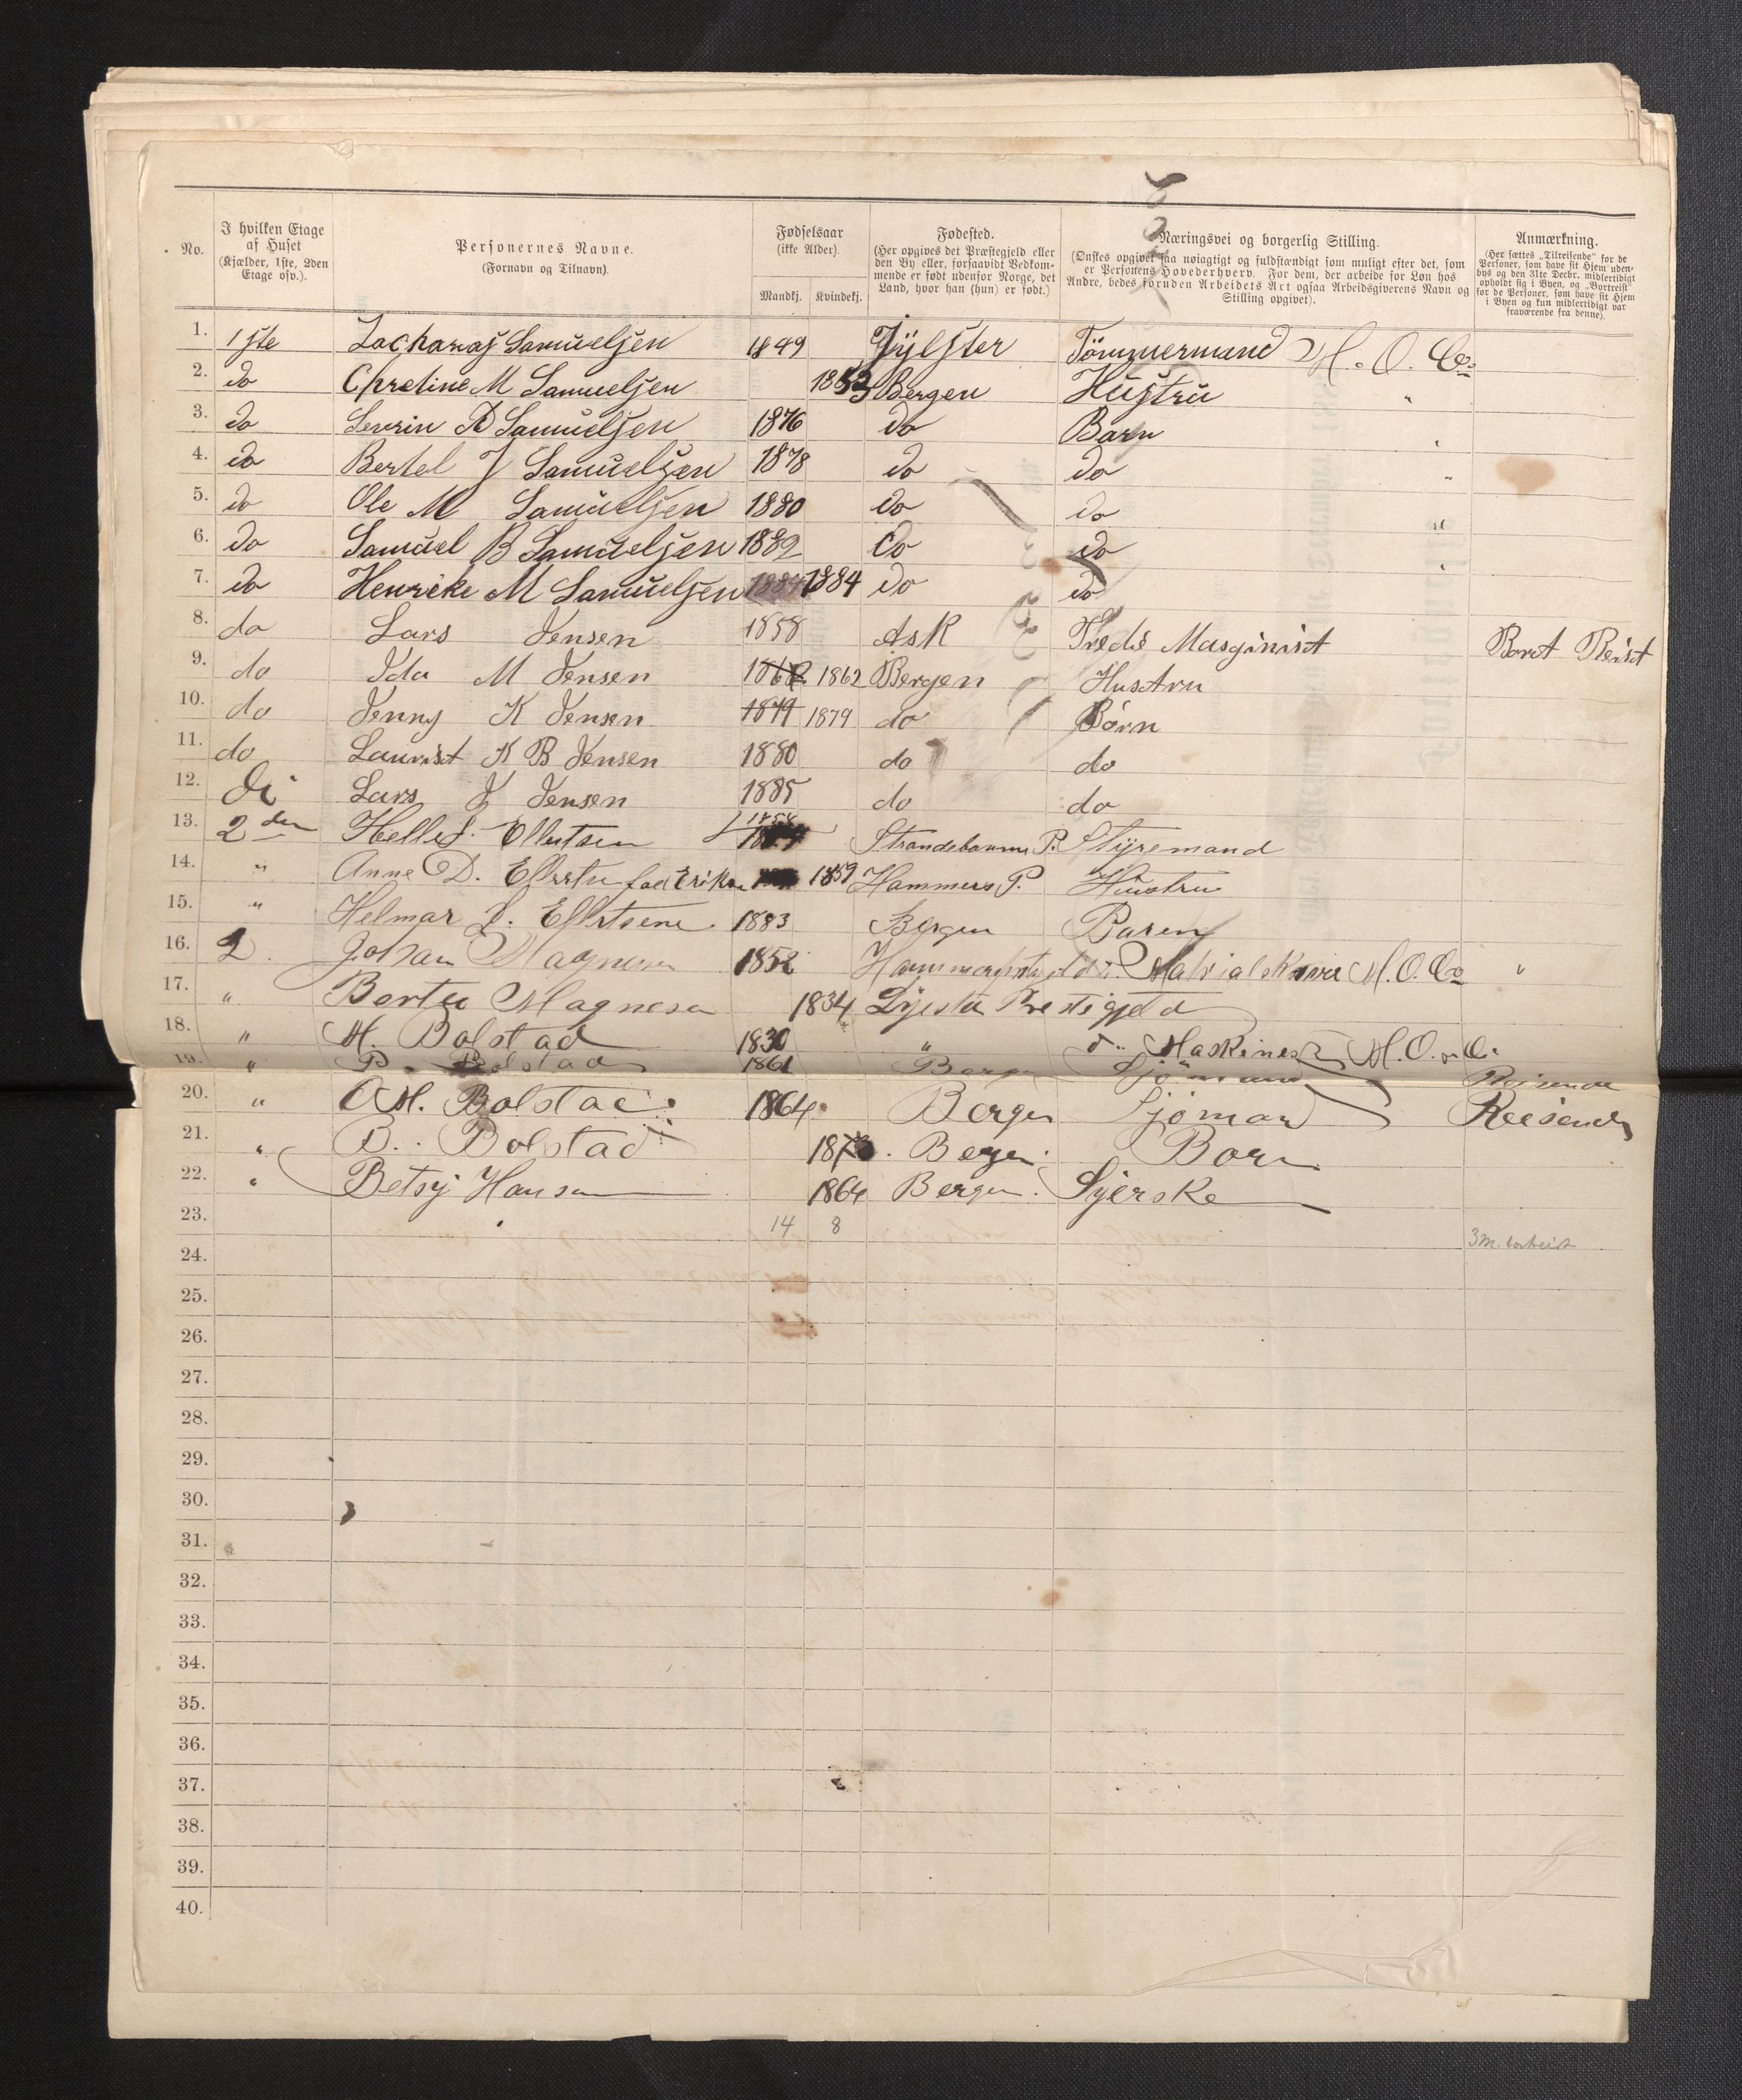 No.
I hvilken Etage af Huset (Kjælder, 1ste, 2den Etage osv.).
Personernes Navne. (Fornavn og Tilnavn).
Fødselsaar (ikke Alder).
Mandkj. Kvindekj.
Fødested. (Her opgives det Præstegjeld eller den By eller, forsaavidt Vedkommende er født udenfor Norge, det Land, hvor han (hun) er født.)
Næringsvei og borgerlig Stilling. (Ønskes opgivet saa nøiagtigt og fuldstændigt som muligt efter det, som er Personens Hovederhverv. For dem, der arbeide for Løn hos Andre, bedes foruden Arbeidets Art ogsaa Arbeidsgiverens Navn og Stilling opgivet).
Anmærkning. (Her sættes „Tilreisende" for de Personer, som have sit Hjem udenbys og den 31te Decbr. midlertidigt opholdt sig i Byen, og „Bortreist" for de Personer, som have sit Hjem i Byen og kun midlertidigt var fraværende fra denne).
1. 1ste Zacharias Samuelsen 1849 Jÿlster Tömmermand M. O. Co
2. do Chrestine M Samuelsen 1853 Bergen Hustru "
3. do Sevrin R Samuelsen 1876 do Barn "
4. do Bertel J Samuelsen 1878 do do "
5. do Ole M Samuelsen 1880 do do "
6. do Samuel B Samuelsen 1882 do do "
7. do Henreke M Samuelsen 1884 1884 do do
8. do Lars Jensen 1858 Ask Tredie Masginist Bort Reist
9. do Ida M Jensen 1862 1862 Bergen Hustru
10. do Jenny K Jensen 1879 1879 do Børn
11. do Laurist K B Jensen 1880 do do
12. do Lars J Jensen 1885 do do
13. 2den Helle S. Ellertsen 1854 Strandebarms P. Stÿremand
14. " Anne D. 1859 Hammers P. Hüstru
15. " Helmar L. Ellertsene 1883 Bergen Baren
16. 2. Johan Magnesen 1852 M. O. Co "
17. " Berte Magnesen 1834 Prestegjeld
18. " M. Bolstad 1830 " d" Maskinest M. O. & Co
19. " P. Bolstad 1861 Bergen Sjömand Reisende
20. " A M. Bolstad 1864 Bergen Sjömand Reisende
21. " B. Bolstad Bergen Born
22. " Betsÿ Hansen 1864 Bergen. Sÿerske
23. 14 8
24. 3 m. bortreist
25.
26.
27.
28.
29.
30.
31.
32.
33.
34.
35.
36.
37.
38.
39.
40.